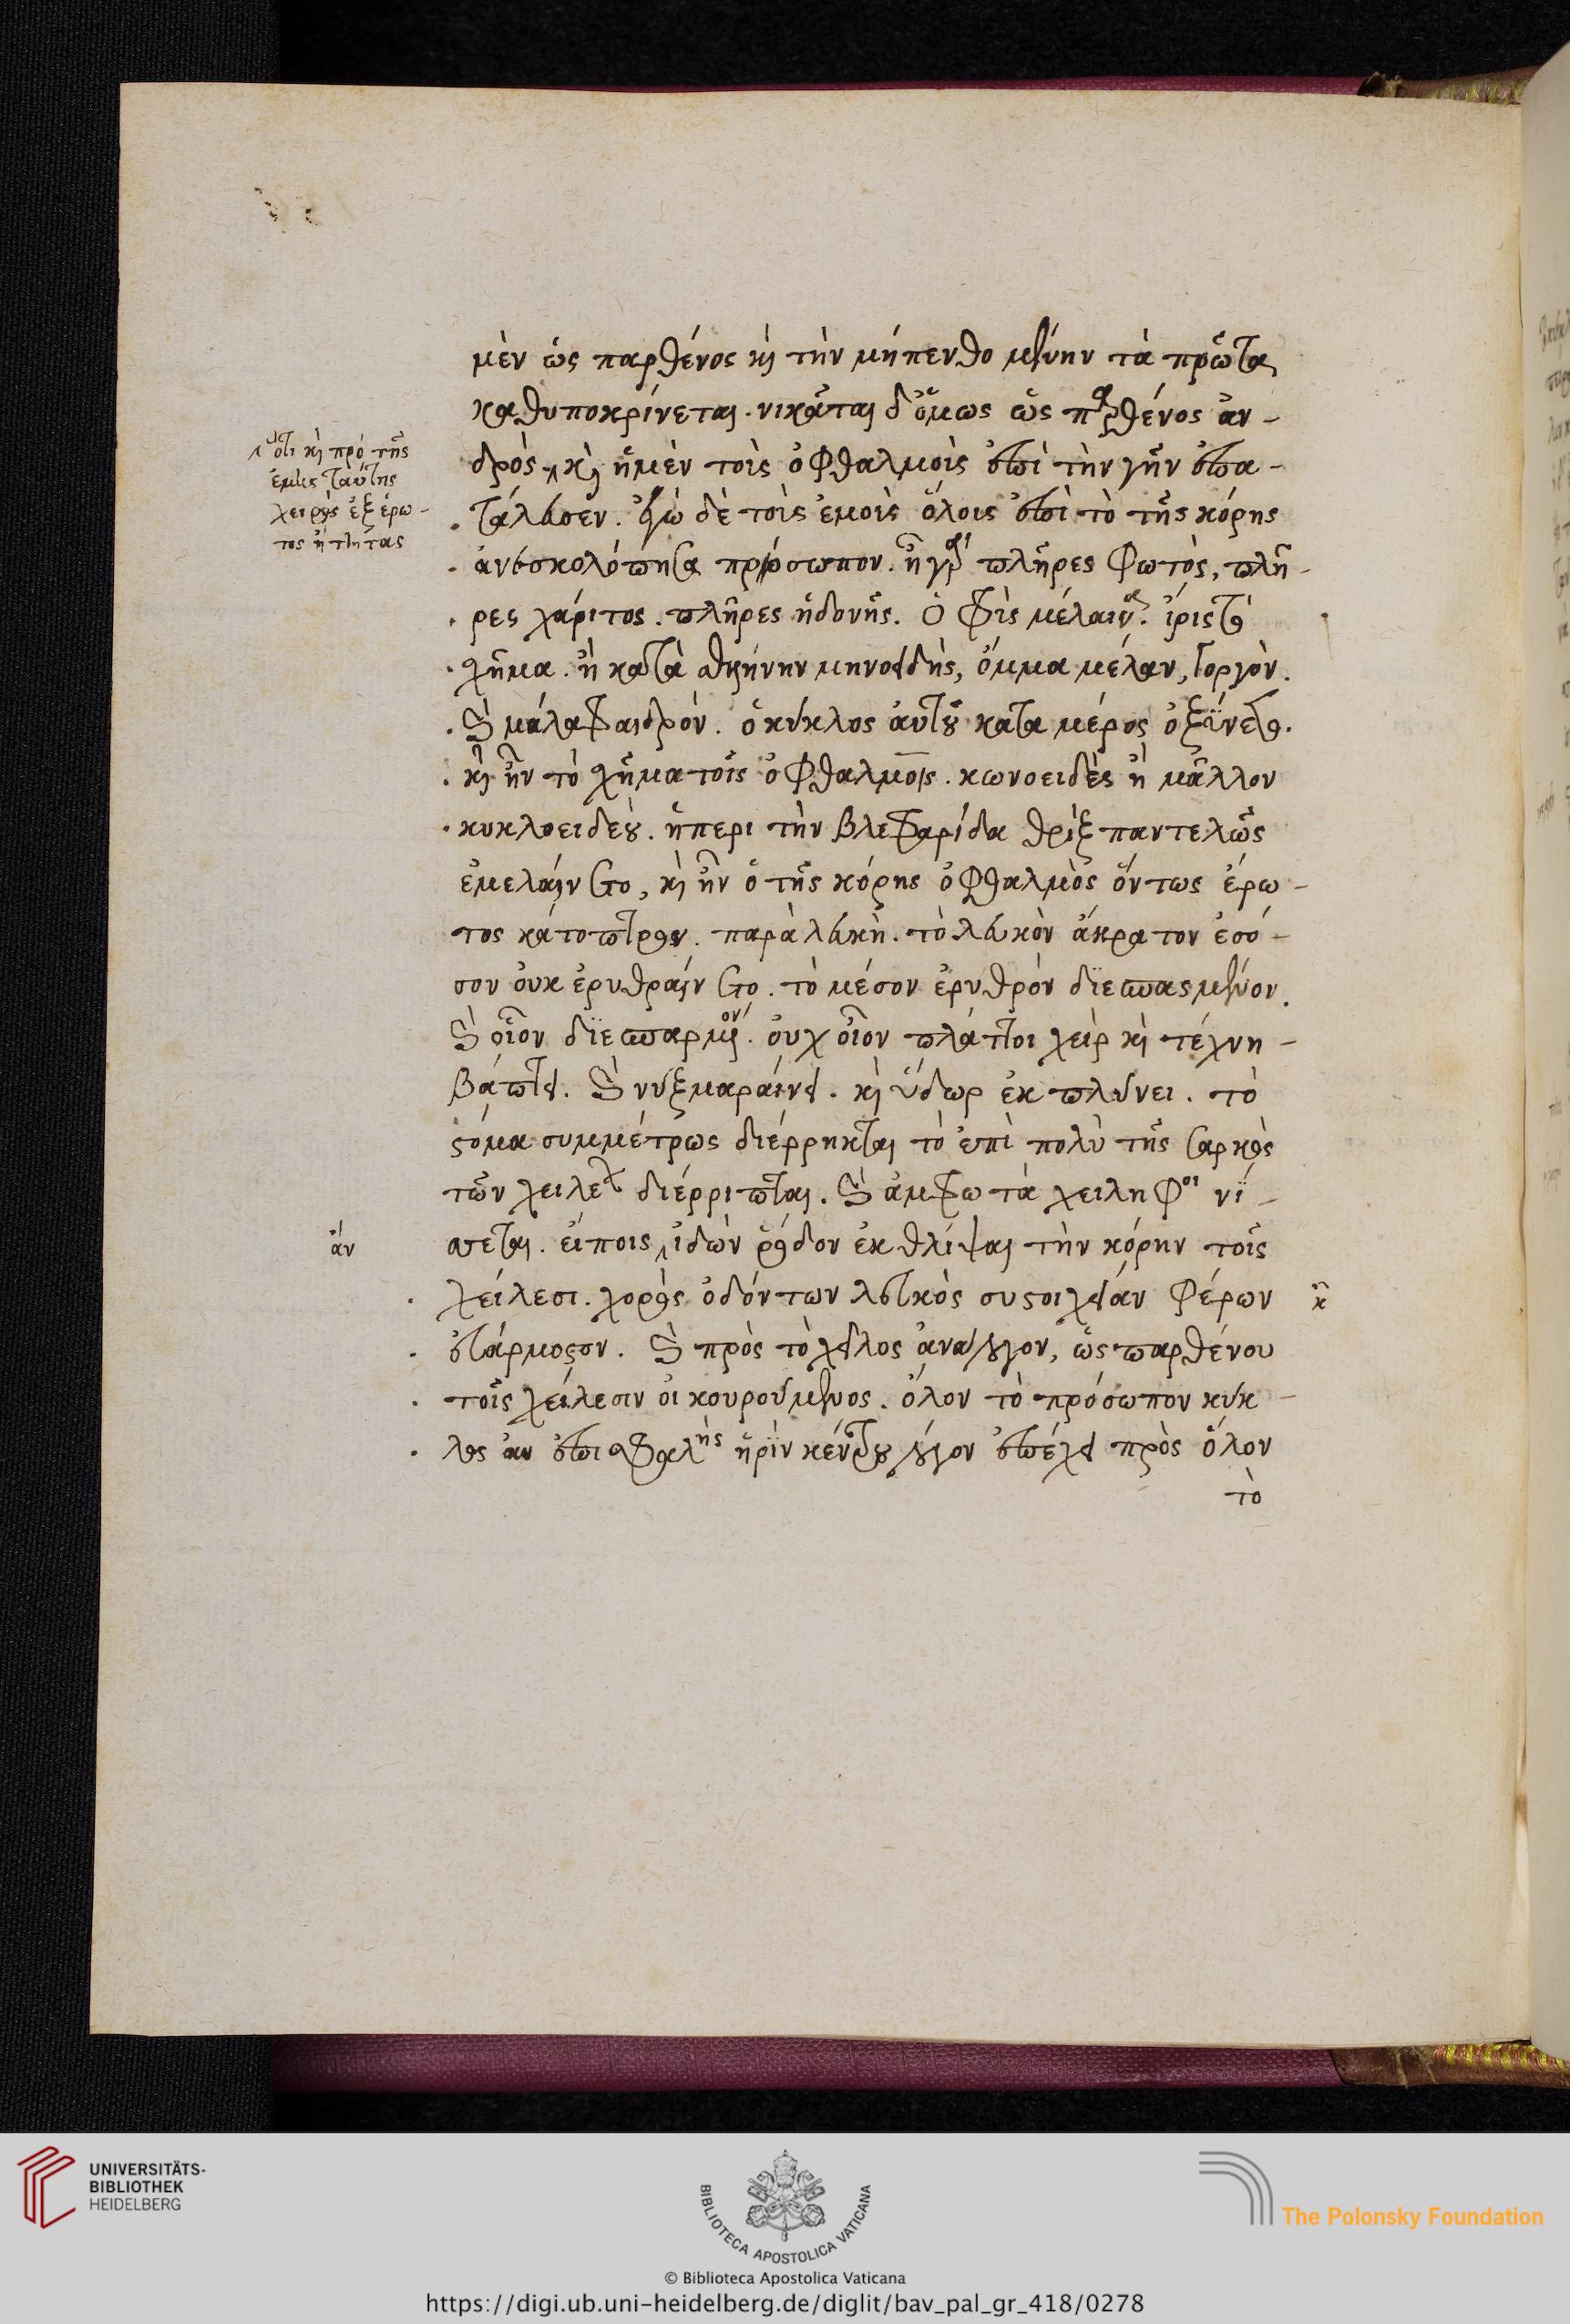 μὲν ὡς παρθένος κὶ τὴν μήπενθο μένην τὰ πρῶτα
καθυποκρίνεται. νικᾶται δ' ὅμως ὡς παρθένος ἀν-
δρός, κὶ ἡμὲν τοῖς ὀφθαλμοῖς ἐπὶ τὴν γῆν ἐπα-
ὅτι κὶ πρὸ τῆς
ἐμῆς ταύτης
χειρὸς ἐξ ἔρω-
τος ἥττητας
τάλευσεν. ἐγὼ δὲ τοῖς ἐμοῖς ὅλοις ἐπὶ τὸ τῆς κόρης
ἀνεσκολόπησα πρόσωπον. ἦ γὰρ πλῆρες φωτὸς, πλῆ-
ρες χάριτος. πλῆρες ἡδονῆς. ὀφρὺς μέλαινα. ἶρις τὸ
σχῆμα. ἢ κατὰ σελήνην μηνοειδὴς, ὄμμα μέλαν, γοργὸν.
καὶ μάλα φαιδρόν. ὁ κύκλος αὐτοῦ κατα μέρος ὀξύνετο.
κὶ ἦν τὸ σχῆμα τοῖς ὀφθαλμοῖς. κωνοειδὲς ἢ μᾶλλον
κυκλοειδέου. ἡ περι τὴν βλεφαρίδα θρὶξ παντελῶς
ἐμελαίνετο, κὶ ἦν ὁ τῆς κόρης ὀφθαλμὸς ὄντως ἔρω-
τος κάτοπτρον. παρὰ λευκὴ. τὸ λευκὸν ἄκρατον ἐσό-
σον οὐκ ἐρυθραίνετο. τὸ μέσον ἐρυθρὸν διεσπασμένον.
καὶ οἷον διεσπαρμένον. οὐχ οἷον πλάττοι χεὶρ κὶ τέχνη-
βάπτει. καὶ νὺξ μαραίνει. κὶ ὕδωρ ἐκπλύνει. τὸ
στόμα συμμέτρως διέρρηκται τὸ ἐπὶ πολὺ τῆς σαρκὸς
τῶν χειλέων διέρριπται. καὶ ἄμφω τὰ χείλη φοινί-
σσεται. εἴποις ἰδὼν ῥόδον ἐκθλίψαι τὴν κόρην τοῖς
ἂν
χείλεσι. χορὸς ὀδόντων λευκὸς συστοιχείαν φέρων
κ
εὐάρμοστον. καὶ πρὸς τὸ χεῖλος ἀνάλογον, ὡς παρθένου
τοῖς χείλεσιν οἰκουρούμενος. ὅλον τὸ πρόσωπον κύκ-
λος ἂν ἐπισφαλὴς ἡ ρὶν κέντρου λόγον ἐπέχει πρὸς ὅλον
τὸ
UNIVERSITÄTS-
BIBLIOTHEK
HEIDELBERG
BIBLIOTECA APOSTOLICA VATICANA
The Polonsky Foundation
© Biblioteca Apostolica Vaticana
https://digi.ub.uni-heidelberg.de/diglit/bav_pal_gr_418/0278